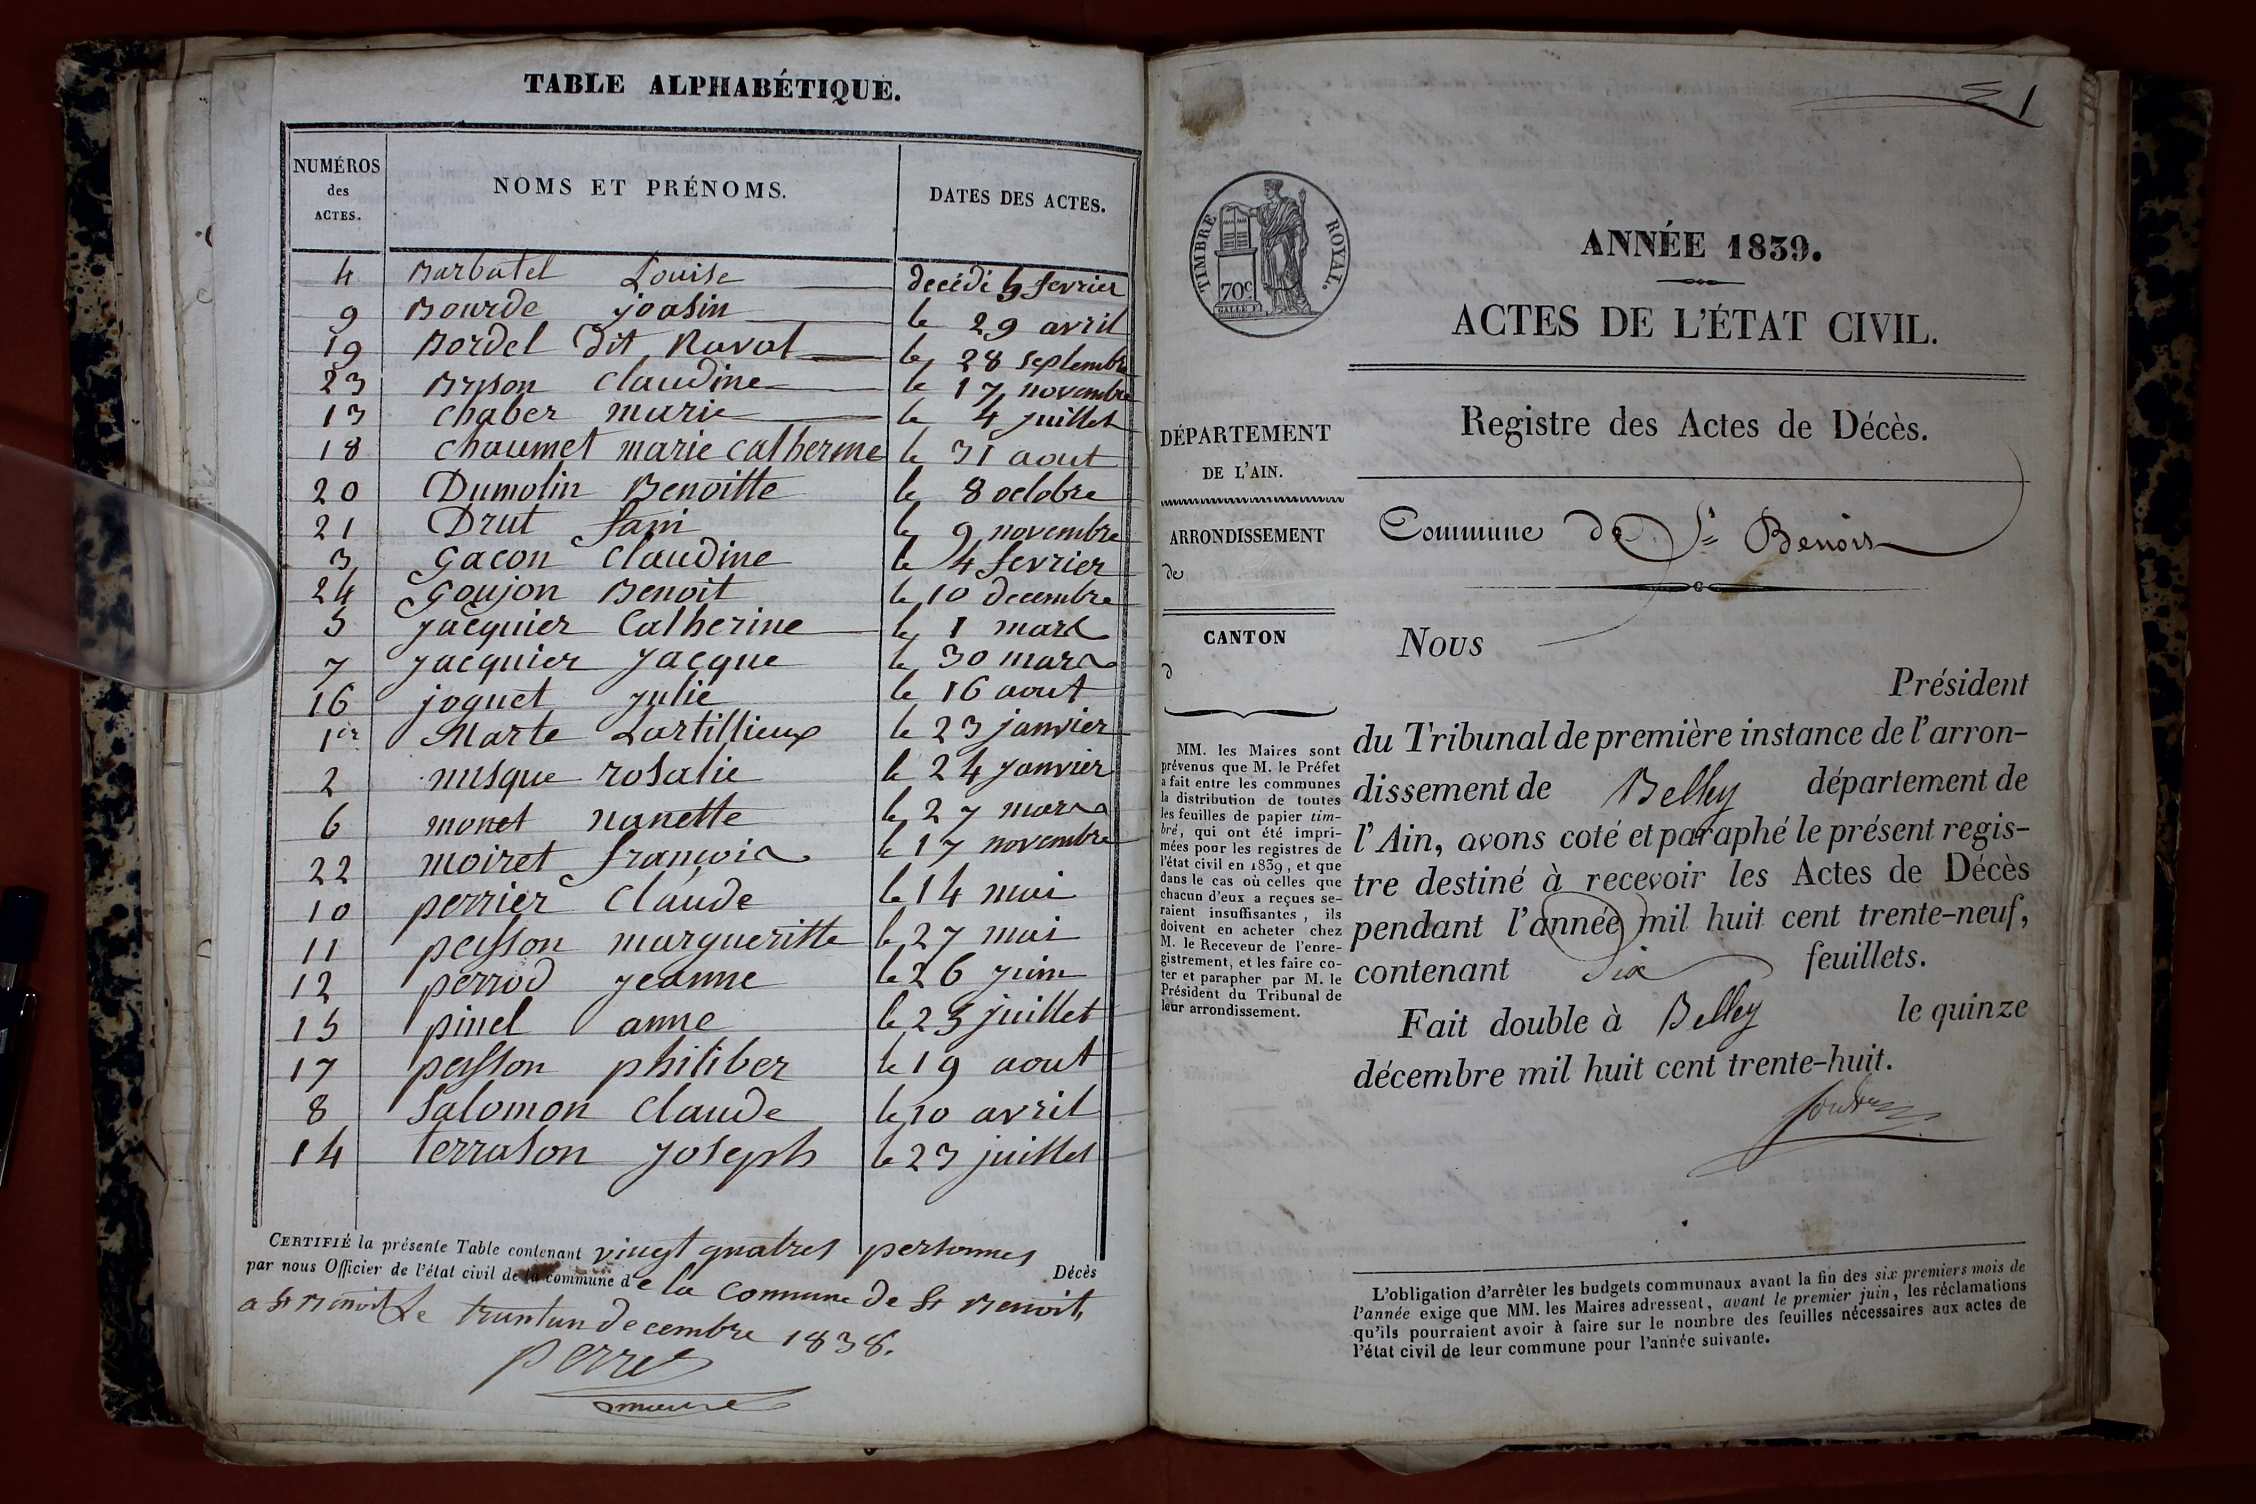 TABLE ALPHABÉTIQUE.
NUMÉROS des ACTES. NOMS ET PRÉNOMS. DATES DES ACTES.
4 Barbatel Louise decédé 9 fevrier
9 Bourde joasin le 29 avril
19 Bordel dit Ravat le 28 septembre
23 Brison Claudine le 17 novembre
13 Chaber marie le 4 juillet
18 Chaumet marie Catherine le 31 aout
20 Dumolin Benoitte le 8 octobre
21 Drut fani le 9 novembre
3 Gacon Claudine le 4 fevrier
24 Goujon Benoit le 10 decembre
5 Jacquier Catherine le 1 mars
7 Jacquier Jacque le 30 mars
16 joguet Julie le 16 aout
1er Marte Lartillieux le 23 janvier
2 misque rosalie le 24 janvier
6 monet nanette le 27 mars
22 moiret françois le 17 novembre
10 perrier Claude le 14 mai
11 peysson margueritte le 27 mai
12 perrod Jeanne le 26 juin
15 pinel anne le 25 juillet
17 peysson philiber le 19 aout
8 Salomon Claude le 10 avril
14 terrason Joseph le 23 juillet
CERTIFIÉ la présente Table contenant vingt quatres personnes Décès
par nous Officier de l'état civil de la commune de la Commune de St Benoit,
a St Benoit Le trantun decembre 1838.
perret
maire
1
TIMBRE ROYAL.
70c
ANNÉE 1839.
ACTES DE L'ÉTAT CIVIL.
Registre des Actes de Décès.
DÉPARTEMENT
DE L'AIN.
ARRONDISSEMENT
de
CANTON
d
MM. les Maires sont
prévenus que M. le Préfet
a fait entre les communes
la distribution de toutes
les feuilles de papier tim-
bré, qui ont été impri-
mées pour les registres de
l'état civil en 1839, et que
dans le cas où celles que
chacun d'eux a reçues se-
raient insuffisantes, ils
doivent en acheter chez
M. le Receveur de l'enre-
gistrement, et les faire co-
ter et parapher par M. le
Président du Tribunal de
leur arrondissement.
Commune de St Benoit
Nous
Président
du Tribunal de première instance de l'arron-
dissement de Belley département de
l'Ain, avons coté et paraphé le présent regis-
tre destiné à recevoir les Actes de Décès
pendant l'année mil huit cent trente-neuf,
contenant dix feuillets.
Fait double à Belley le quinze
décembre mil huit cent trente-huit.
L'obligation d'arrêter les budgets communaux avant la fin des six premiers mois de
l'année exige que MM. les Maires adressent, avant le premier juin, les réclamations
qu'ils pourraient avoir à faire sur le nombre des feuilles nécessaires aux actes de
l'état civil de leur commune pour l'année suivante.